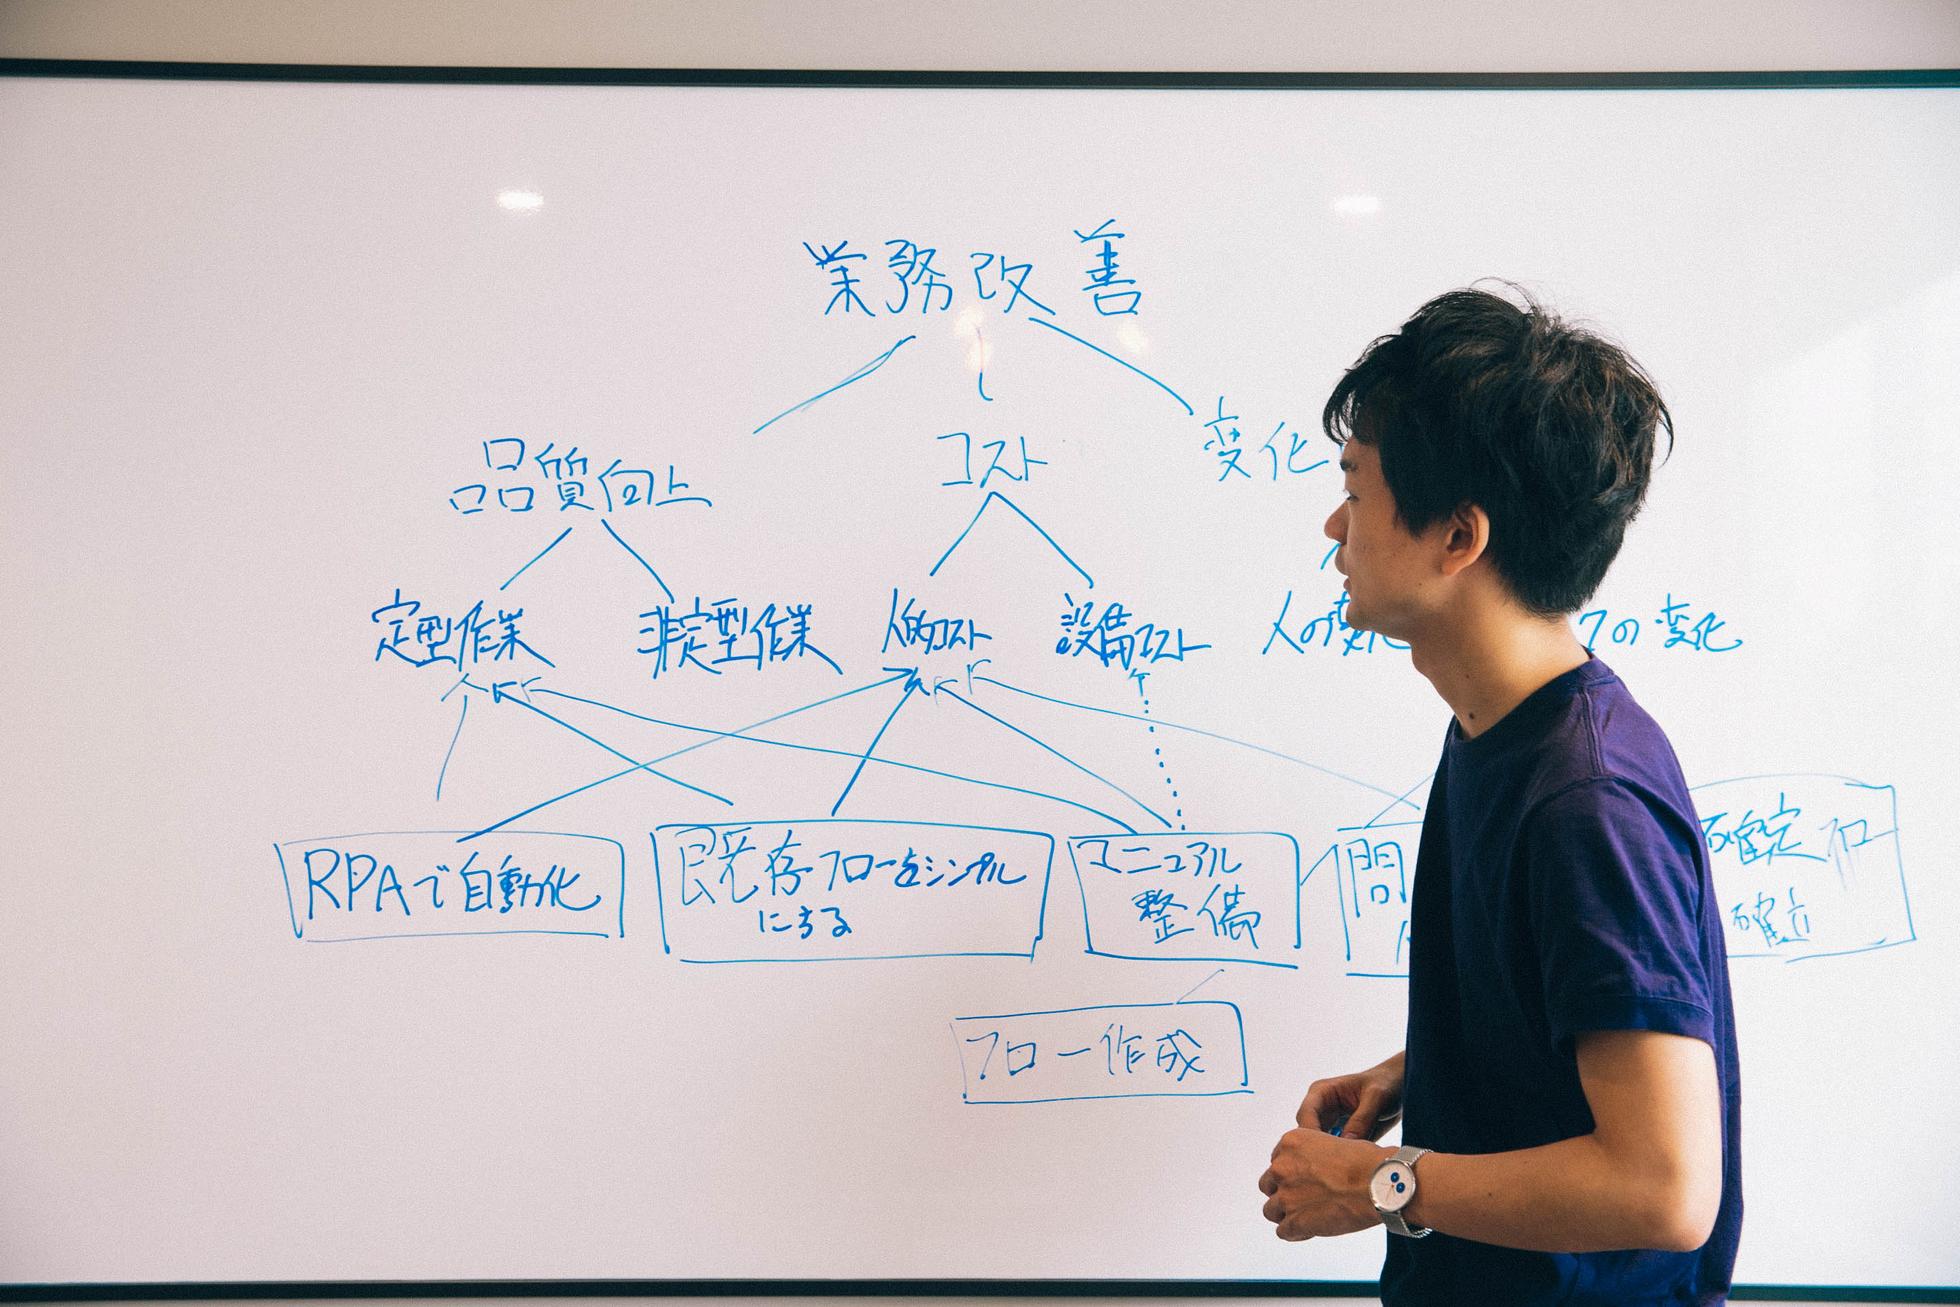 業務改善
品質向上
コスト
変化
定型作業
非定型作業
人的コスト
設備コスト
人の変化
の変化
RPAで自動化
既存フローをシンプル
にする
マニュアル
整備
問
確定フロー
確立
フロー作成